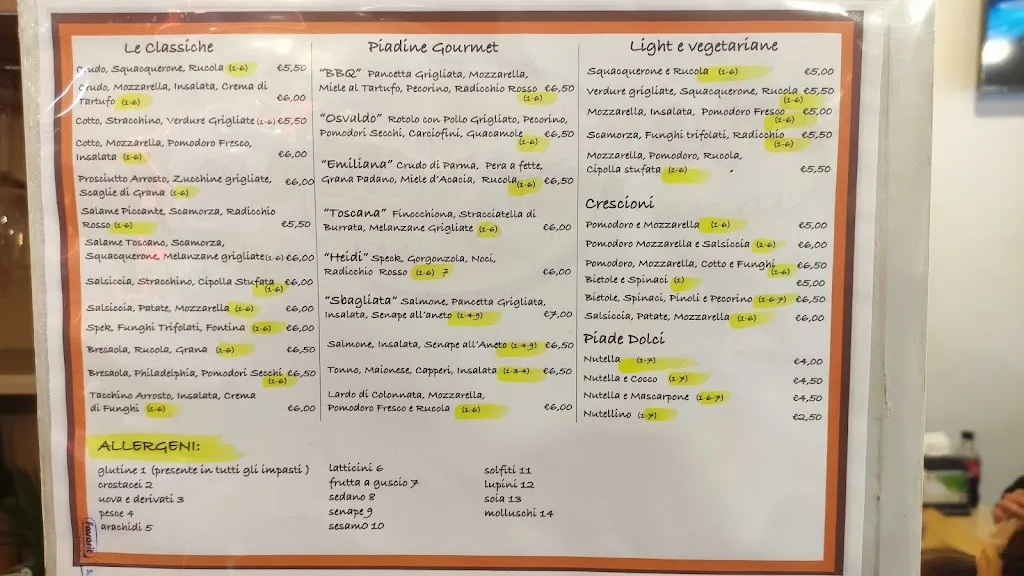 Le Classiche
Crudo, Squacquerone, Rucola (1-6) €5,50
Crudo, Mozzarella, Insalata, Crema di
Tartufo (1-6) €6,00
Cotto, Stracchino, Verdure Grigliate (1-6) €5,50
Cotto, Mozzarella, Pomodoro Fresco,
Insalata (1-6) €6,00
Prosciutto Arrosto, Zucchine grigliate, €6,00
Scaglie di Grana (1-6)
Salame Piccante, Scamorza, Radicchio
Rosso (1-6) €5,50
Salame Toscano, Scamorza,
Squacquerone, Melanzane grigliate (1-6) €6,00
Salsiccia, Stracchino, Cipolla Stufata €6,00
(1-6)
Salsiccia, Patate, Mozzarella (1-6) €6,00
Spek, Funghi Trifolati, Fontina (1-6) €6,00
Bresaola, Rucola, Grana (1-6) €6,50
Bresaola, Philadelphia, Pomodori Secchi €6,50
(1-6)
Tacchino Arrosto, Insalata, Crema
di Funghi (1-6) €6,00
Piadine Gourmet
"BBQ" Pancetta Grigliata, Mozzarella,
Miele al Tartufo, Pecorino, Radicchio Rosso €6,50
(1-6)
"Osvaldo" Rotolo con Pollo Grigliato, Pecorino,
Pomodori Secchi, Carciofini, Guacamole €6,50
(1-6)
"Emiliana" Crudo di Parma, Pera a fette,
Grana Padano, Miele d'Acacia, Rucola (1-6) €6,50
"Toscana" Finocchiona, Stracciatella di
Burrata, Melanzane Grigliate (1-6) €6,00
"Heidi" Speck, Gorgonzola, Noci,
Radicchio Rosso (1-6) 7 €6,00
"Sbagliata" Salmone, Pancetta Grigliata,
Insalata, Senape all'aneto (1-4-9) €7,00
Salmone, Insalata, Senape all'Aneto (1-4-9) €6,50
Tonno, Maionese, Capperi, Insalata (1-3-4) €6,50
Lardo di Colonnata, Mozzarella,
Pomodoro Fresco e Rucola (1-6) €6,00
Light e vegetariane
Squacquerone e Rucola (1-6) €5,00
Verdure grigliate, Squacquerone, Rucola €5,50
(1-6)
Mozzarella, Insalata, Pomodoro Fresco €5,00
(1-6)
Scamorza, Funghi trifolati, Radicchio €5,50
(1-6)
Mozzarella, Pomodoro, Rucola,
Cipolla stufata (1-6) €5,50
Crescioni
Pomodoro e Mozzarella (1-6) €5,00
Pomodoro Mozzarella e Salsiccia (1-6) €6,00
Pomodoro, Mozzarella, Cotto e Funghi €6,50
(1-6)
Bietole e Spinaci (1) €5,00
Bietole, Spinaci, Pinoli e Pecorino (1-6-7) €6,50
Salsiccia, Patate, Mozzarella (1-6) €6,00
Piade Dolci
Nutella (1-7) €4,00
Nutella e Cocco (1-7) €4,50
Nutella e Mascarpone (1-6-7) €4,50
Nutellino (1-7) €2,50
ALLERGENI:
glutine 1 (presente in tutti gli impasti)
crostacei 2
uova e derivati 3
pesce 4
arachidi 5
latticini 6
frutta a guscio 7
sedano 8
senape 9
sesamo 10
solfiti 11
lupini 12
soia 13
molluschi 14
favorit